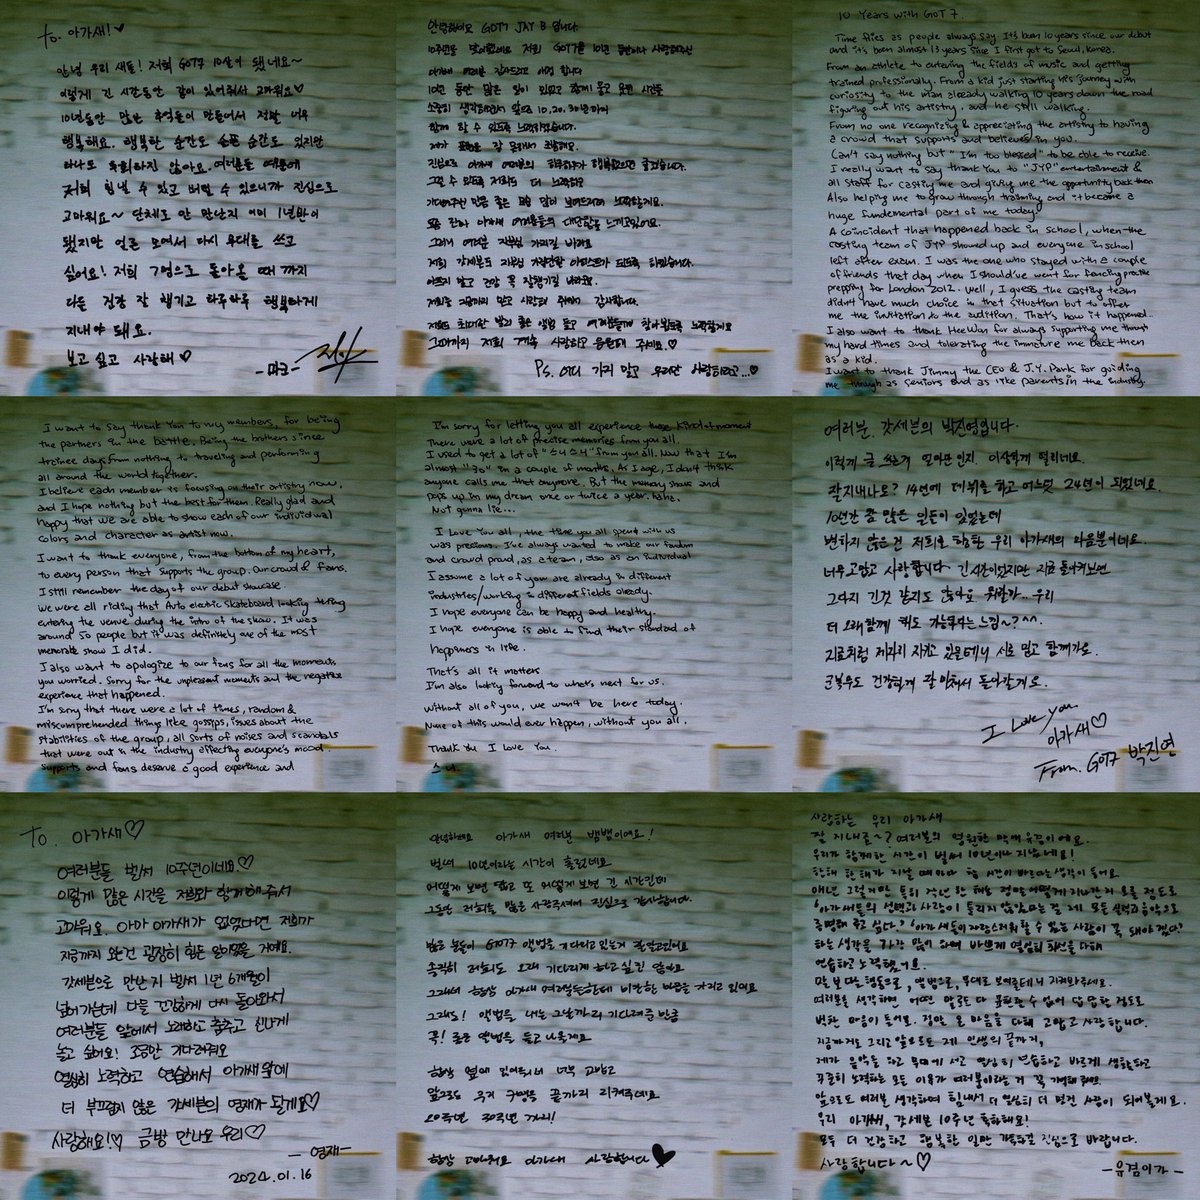 to. 아가새! ♡
안녕 우리 새들! 저희 GOT7 10살이 됐네요~
이렇게 긴 시간동안 같이 있어줘서 고마워요♡
10년동안 많은 추억들이 만들어서 정말 너무
행복해요. 행복한 순간도 슬픈 순간도 있지만
하나도 후회하진 않아요. 여러분들 때문에
저희 힘낼 수 있고 버틸 수 있으니까 진심으로
고마워요~ 단체로 안 만난지 이미 1년반이
됐지만 얼른 모여서 다시 무대를 쓰고
싶어요! 저희 7명으로 돌아올 때 까지
다들 건강 잘 챙기고 하루하루 행복하게
지내야 돼요.
보고 싶고 사랑해 ♡
-마크-
안녕하세요 GOT7 JAY B 입니다.
10주년을 맞이했네요 저희 GOT7을 10년 동안이나 사랑해주신
아가새 여러분 감사드리고 애정 합니다
10년 동안 많은 일이 있었고 함께 울고 웃던 시간들
소중히 생각하면서 앞으로 10.20.30년까지
함께 할 수 있도록 노력하겠습니다.
제가 표현을 잘 못해서 그렇네요.
진심으로 아가새 여러분의 하루하루가 행복했으면 좋겠습니다.
그럴 수 있도록 저희도 더 노력하고
기대해주신 만큼 좋은 모습 많이 보여드리려 노력할게요.
요즘 혼자 아가새 여러분들의 대단함을 느끼고있어요.
그러니 여러분 자부심 가지길 바라요
저희 갓세븐도 자부심 가질만한 아티스트가 되도록 하겠습니다.
아프지 말고 건강 꼭 잘챙기길 바라요.
저희를 그동안까지 믿고 사랑해 주셔서 감사합니다.
저희도 최대한 빨리 좋은 앨범 들고 여러분들께 찾아뵙도록 노력할게요
그때까지 저희 계속 사랑하고 응원해 주세요.♡
Ps. 어디 가지 말고 우리만 사랑하라고...♡
10 Years with GOT7.
Time flies as people always say. It's been 10 years since our debut
and it's been almost 13 years since I first got to Seoul, Korea.
From an athlete to entering the fields of music and getting
trained professionally. From a kid just starting his journey with
curiosity to the man already walking 10 years down the road
figuring out his artistry, and he still walking.
From no one recognizing & appreciating the artistry to having
a crowd that supports and believes in you.
Can't say nothing but "I'm too blessed" to be able to receive.
I really want to say thank you to "JYP" entertainment &
all staff for casting me and giving me the opportunity back then
Also helping me to grow through training and it became a
huge fundemental part of me today.
A coincident that happened back in school, when the
casting team of JYP showed up and everyone in school
left after exam. I was the one who stayed with a couple
of friends that day when I should've went for fencing practice
prepping for London 2012. Well, I guess the casting team
didn't have much choice in that situation but to offer
me the invitation to the audition. That's how it happened.
I also want to thank HeeWon for always supporting me through
my hard times and tolerating the immature me back then
as a kid.
I want to thank Jimmy the CEO & J.Y. Park for guiding
me through as seniors and as like parents in the industry.
I want to say thank You to my members, for being
the partners in the battle. Being the brothers since
trainee days, from nothing to traveling and performing
all around the world together.
I believe each member is focusing on their artistry now,
and I hope nothing but the best for them. Really glad and
happy that we are able to show each of our individual
colors and character as artist now.
I want to thank everyone, from the bottom of my heart,
to every person that supports the group. Our crowd & fans.
I still remember the day of our debut showcase.
We were all riding that Auto electric skateboard looking thing
entering the venue during the intro of the show. It was
around 50 people but it was definitely one of the most
memorable show I did.
I also want to apologize to our fans for all the moments
you worried. Sorry for the unpleasent moments and the negative
experience that happened.
I'm sorry that there were a lot of times, random &
miscomprehended things like gossips, issues about the
stabilities of the group, all sorts of noises and scandals
that were out in the industry affecting everyone's mood.
Supports and fans deserve a good experience and
I'm sorry for letting you all experience those kind of moment
There were a lot of precise memories from you all.
I used to get a lot of "스니스니" from you all. Now that I'm
almost "30" in a couple of months. As I age, I don't think
anyone calls me that anymore. But the memory shows and
pops up in my dream once or twice a year. haha.
Not gonna lie...
I Love You all, the time you all spent with us
was precious. I've always wanted to make our fandom
and crowd proud, as a team, also as an individual
I assume a lot of you are already in different
industries/working in different fields already.
I hope everyone can be happy and healthy.
I hope everyone is able to find their standard of
happiness in life.
That's all it matters
I'm also looking forward to what's next for us.
Without all of you, we won't be here today.
None of this would ever happen, without you all.
Thank You I Love You.
스니.
여러분. 갓세븐의 박진영입니다.
이렇게 글 쓰는게 얼마만인지. 이상하게 떨리네요.
잘지내나요? 14년에 데뷔를 하고 어느덧 24년이 되었네요.
10년간 참 많은 일들이 있었는데
변하지 않은건 저희를 향한 우리 아가새의 마음뿐이네요.
너무고맙고 사랑합니다. 긴시간이었지만 지금 돌이켜보면
그다지 긴것 같지도 않아요 뭐랄까... 우리
더 오래함께 해도 가능하다는 느낌~? ^^.
지금처럼 제자리 지키고 있을테니 서로 믿고 함께가요.
군복무도 건강하게 잘 마쳐서 돌아갈게요.
I Love you
아가새♡
From. GOT7 박진영
To. 아가새♡
여러분들 벌써 10주년이네요♡
이렇게 많은 시간을 저희와 함께해주셔서
고마워요. 아마 아가새가 없었다면 저희가
지금까지 와는건 굉장히 힘든 일이었을 거예요.
갓세븐으로 만난지 벌써 1년 6개월이
넘어가는데 다들 건강하게 다시 돌아와서
여러분들 앞에서 노래하고 춤추고 신나게
놀고 싶어요! 조금만 기다려줘요
열심히 노력하고 연습해서 아가새한테
더 부끄럽지 않은 갓세븐의 영재가 될게요♡
사랑해요!♡ 금방 만나요 우리♡
- 영재 -
2024.01.16
안녕하세요 아가새 여러분 뱀뱀이에요!
벌써 10년이라는 시간이 흘렀네요
어떻게 보면 짧고 또 어떻게 보면 긴 시간인데
그동안 저희를 많은 사랑주셔서 진심으로 감사합니다.
많은 분들이 GOT7 앨범을 기다리고 있는거 잘알고있어요
솔직히 저희도 오래 기다리게 하고 싶진 않아요
그래서 항상 아가새 여러분들한테 미안한 마음을 가지고 있어요
그래도! 앨범을 내는 그날까지 기다려준만큼
꼭! 좋은 앨범을 들고 나올게요
항상 옆에 있어줘서 너무 고맙고
앞으로도 우리 7명을 끝까지 지켜주세요
20주년 30주년 까지!
항상 고마워요 아가새 사랑합니다 ♥
사랑하는 우리 아가새
잘 지내죠~? 여러분의 영원한 막내 유겸이에요.
우리가 함께한 시간이 벌써 10년이나 지났네요!
한해 한해가 지날 때마다 참 시간이 빠르다는 생각이 들어요.
매년 그렇지만 특히 작년 한 해는 정말 어떻게 지나간지 모를 정도로
'아가새들의 선택과 사랑이 틀리지 않았다는 걸 제 모든 실력과 음악으로
증명해 주고 싶다.' '아가새들이 자랑스러워할 수 있는 사람이 꼭 돼야겠다.'
하는 생각을 가장 많이 하며 바쁘게 열심히 최선을 다해
연습하고 노력했어요.
말 보다는 행동으로, 앨범으로, 무대로 보여줄테니 지켜봐주세요.
여러분을 생각하면 어떤 말로도 다 표현할 수 없어 답답할 정도로
벅찬 마음이 들어요. 정말 온 마음을 다해 고맙고 사랑합니다.
지금까지도 그리고 앞으로도 제 인생의 끝까지,
제가 음악을 하고 무대에 서고 열심히 연습하고 바르게 생활하고
꾸준히 노력하는 모든 이유가 여러분이라는 거 꼭 기억해줘요!
앞으로도 여러분 생각하며 힘내서 더 열심히 더 멋진 사람이 되어볼게요.
우리 아가새, 갓세븐 10주년 축하해요!
모두 더 건강하고 행복한 일만 가득하길 진심으로 바랍니다.
사랑합니다~♡
-유겸이가-